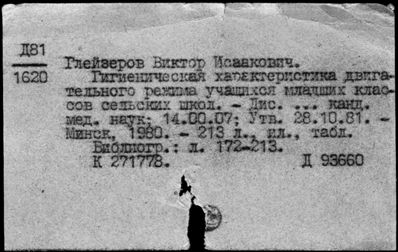 Д81
1620
Глейзеров Виктор Исаакович.
Гигиеническая характеристика двига-
тельного режима учащихся младших клас-
сов сельских школ. - Дис. ... канд.
мед. наук: 14.00.07; Утв. 28.10.81. -
Минск, 1980. - 213 л., ил., табл.
Библиогр.: л. 172-213.
К 271778. Д 93660